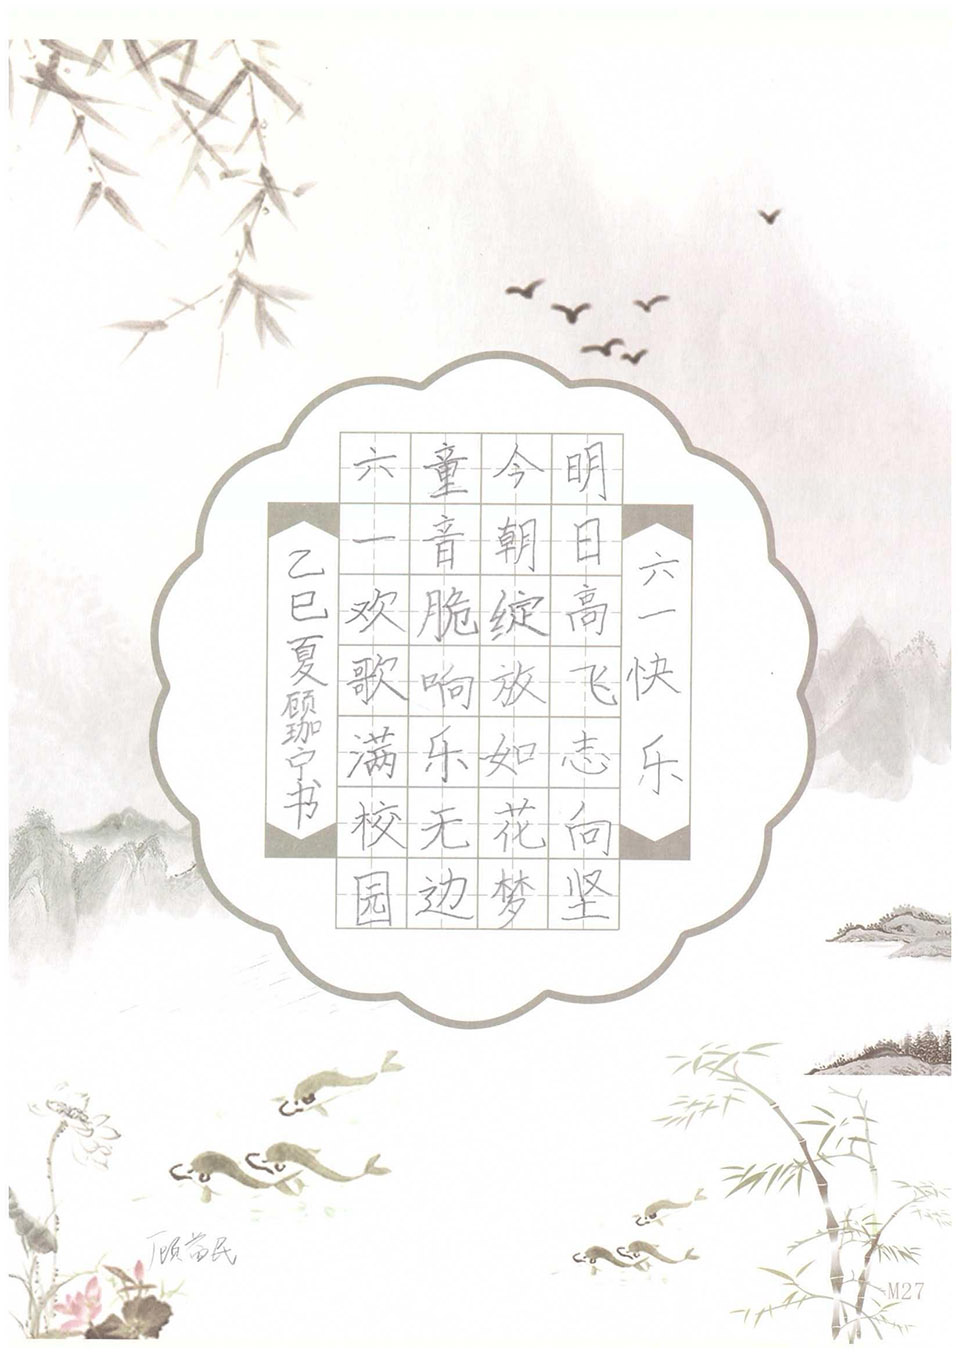 六一快乐
六一欢歌满校园
童音脆响乐无边
今朝绽放如花梦
明日高飞志向坚
乙巳夏顾珈宁书
M27